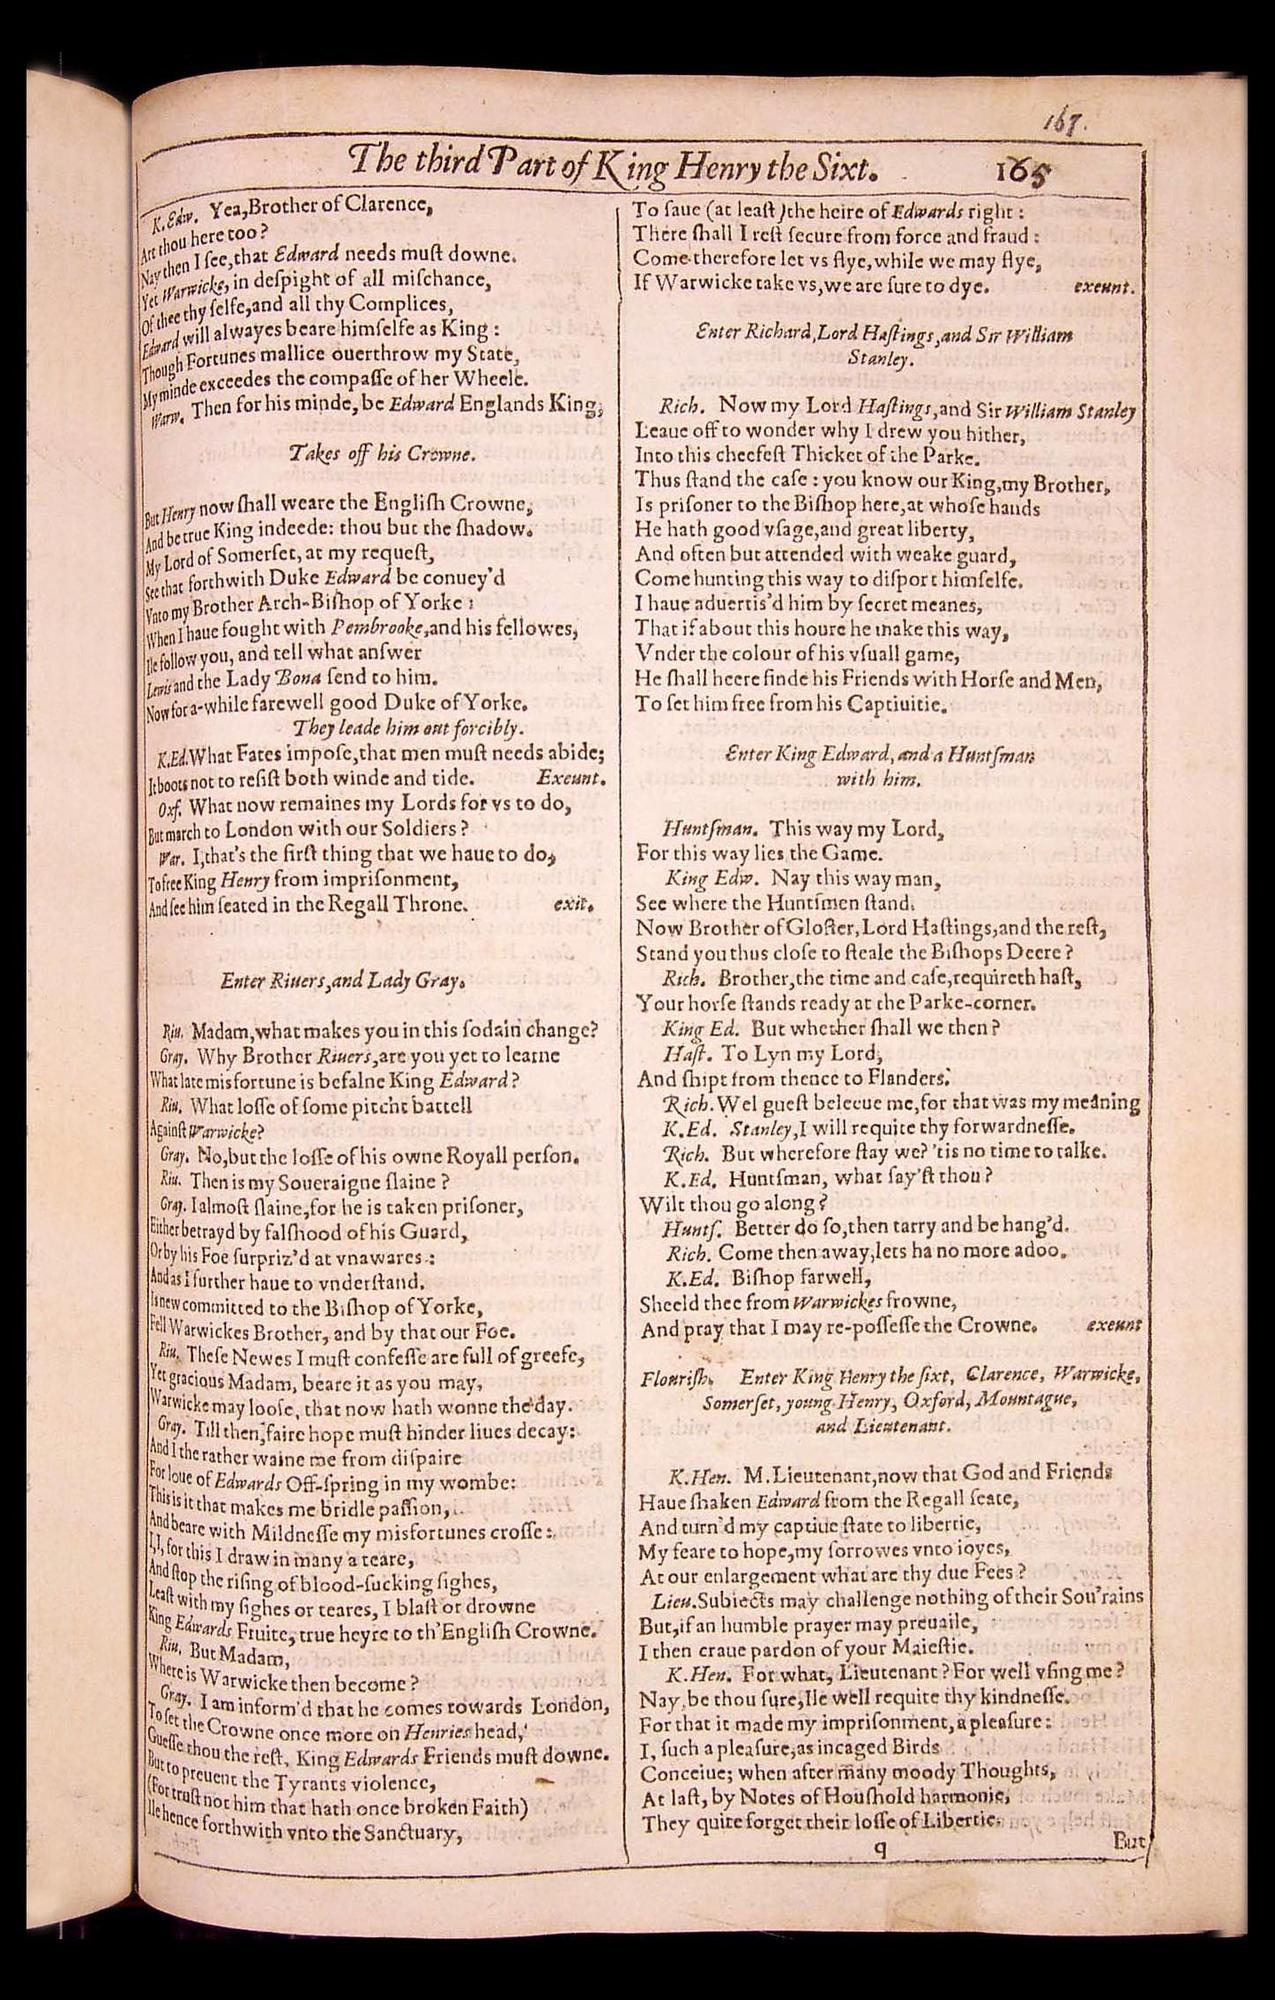 167.
The third Part of King Henry the Sixt. 165
K.Edw. Yea,Brother of Clarence,
Art thou here too?
Nay then I see,that Edward needs must downe.
Yet Warwicke, in despight of all mischance,
Of thee thy selfe,and all thy Complices,
Edward will alwayes beare himselfe as King:
Though Fortunes mallice ouerthrow my State,
My minde exceedes the compasse of her Wheele.
Warw. Then for his minde, be Edward Englands King,
Takes off his Crowne.
But Henry now shall weare the English Crowne,
And be true King indeede: thou but the shadow.
My Lord of Somerset, at my request,
See that forthwith Duke Edward be conuey'd
Vnto my Brother Arch-Bishop of Yorke:
When I haue fought with Pembrooke,and his fellowes,
Ile follow you, and tell what answer
Lewis and the Lady Bona send to him.
Now for a-while farewell good Duke of Yorke.
They leade him out forcibly.
K.Ed.What Fates impose,that men must needs abide;
It boots not to resist both winde and tide. Exeunt.
Oxf. What now remaines my Lords for vs to do,
But march to London with our Soldiers?
War. I,that's the first thing that we haue to do,
To free King Henry from imprisonment,
And see him seated in the Regall Throne. exit.
Enter Riuers,and Lady Gray.
Riu. Madam,what makes you in this sodain change?
Gray. Why Brother Riuers,are you yet to learne
What late misfortune is befalne King Edward?
Riu. What losse of some pitcht battell
Against Warwicke?
Gray. No,but the losse of his owne Royall person.
Riu. Then is my Soueraigne slaine?
Gray. I almost slaine,for he is taken prisoner,
Either betrayd by falshood of his Guard,
Or by his Foe surpriz'd at vnawares:
And as I further haue to vnderstand,
Is new committed to the Bishop of Yorke,
Fell Warwickes Brother, and by that our Foe.
Riu. These Newes I must confesse are full of greefe,
Yet gracious Madam, beare it as you may,
Warwicke may loose, that now hath wonne the day.
Gray. Till then,faire hope must hinder liues decay:
And I the rather waine me from dispaire
For loue of Edwards Off-spring in my wombe:
This is it that makes me bridle passion,
And beare with Mildnesse my misfortunes crosse:
I,I, for this I draw in many a teare,
And stop the rising of blood-sucking sighes,
Least with my sighes or teares, I blast or drowne
King Edwards Fruite, true heyre to th'English Crowne.
Riu. But Madam,
Where is Warwicke then become?
Gray. I am inform'd that he comes towards London,
To set the Crowne once more on Henries head,
Guesse thou the rest, King Edwards Friends must downe.
But to preuent the Tyrants violence,
(For trust not him that hath once broken Faith)
Ile hence forthwith vnto the Sanctuary,
To saue (at least) the heire of Edwards right:
There shall I rest secure from force and fraud:
Come therefore let vs flye, while we may flye,
If Warwicke take vs, we are sure to dye. exeunt.
Enter Richard,Lord Hastings,and Sir William
Stanley.
Rich. Now my Lord Hastings,and Sir William Stanley
Leaue off to wonder why I drew you hither,
Into this cheefest Thicket of the Parke.
Thus stand the case: you know our King,my Brother,
Is prisoner to the Bishop here,at whose hands
He hath good vsage,and great liberty,
And often but attended with weake guard,
Come hunting this way to disport himselfe.
I haue aduertis'd him by secret meanes,
That if about this houre he make this way,
Vnder the colour of his vsuall game,
He shall heere finde his Friends with Horse and Men,
To set him free from his Captiuitie.
Enter King Edward, and a Huntsman
with him.
Huntsman. This way my Lord,
For this way lies the Game.
King Edw. Nay this way man,
See where the Huntsmen stand.
Now Brother of Gloster,Lord Hastings,and the rest,
Stand you thus close to steale the Bishops Deere?
Rich. Brother,the time and case,requireth hast,
Your horse stands ready at the Parke-corner.
King Ed. But whether shall we then?
Hast. To Lyn my Lord,
And shipt from thence to Flanders.
Rich.Wel guest beleeue me,for that was my meaning
K.Ed. Stanley,I will requite thy forwardnesse.
Rich. But wherefore stay we? 'tis no time to talke.
K.Ed. Huntsman, what say'st thou?
Wilt thou go along?
Hunts. Better do so,then tarry and be hang'd.
Rich. Come then away,lets ha no more adoo.
K.Ed. Bishop farwell,
Sheeld thee from Warwickes frowne,
And pray that I may re-possesse the Crowne. exeunt
Flourish. Enter King Henry the sixt, Clarence, Warwicke,
Somerset, young Henry, Oxford, Mountague,
and Lieutenant.
K.Hen. M.Lieutenant,now that God and Friends
Haue shaken Edward from the Regall seate,
And turn'd my captiue state to libertie,
My feare to hope,my sorrowes vnto ioyes,
At our enlargement what are thy due Fees?
Lieu.Subiects may challenge nothing of their Sou'rains
But,if an humble prayer may preuaile,
I then craue pardon of your Maiestie.
K.Hen. For what, Lieutenant? For well vsing me?
Nay, be thou sure,Ile well requite thy kindnesse.
For that it made my imprisonment, a pleasure:
I, such a pleasure,as incaged Birds
Conceiue; when after many moody Thoughts,
At last, by Notes of Houshold harmonie,
They quite forget their losse of Libertie.
q But